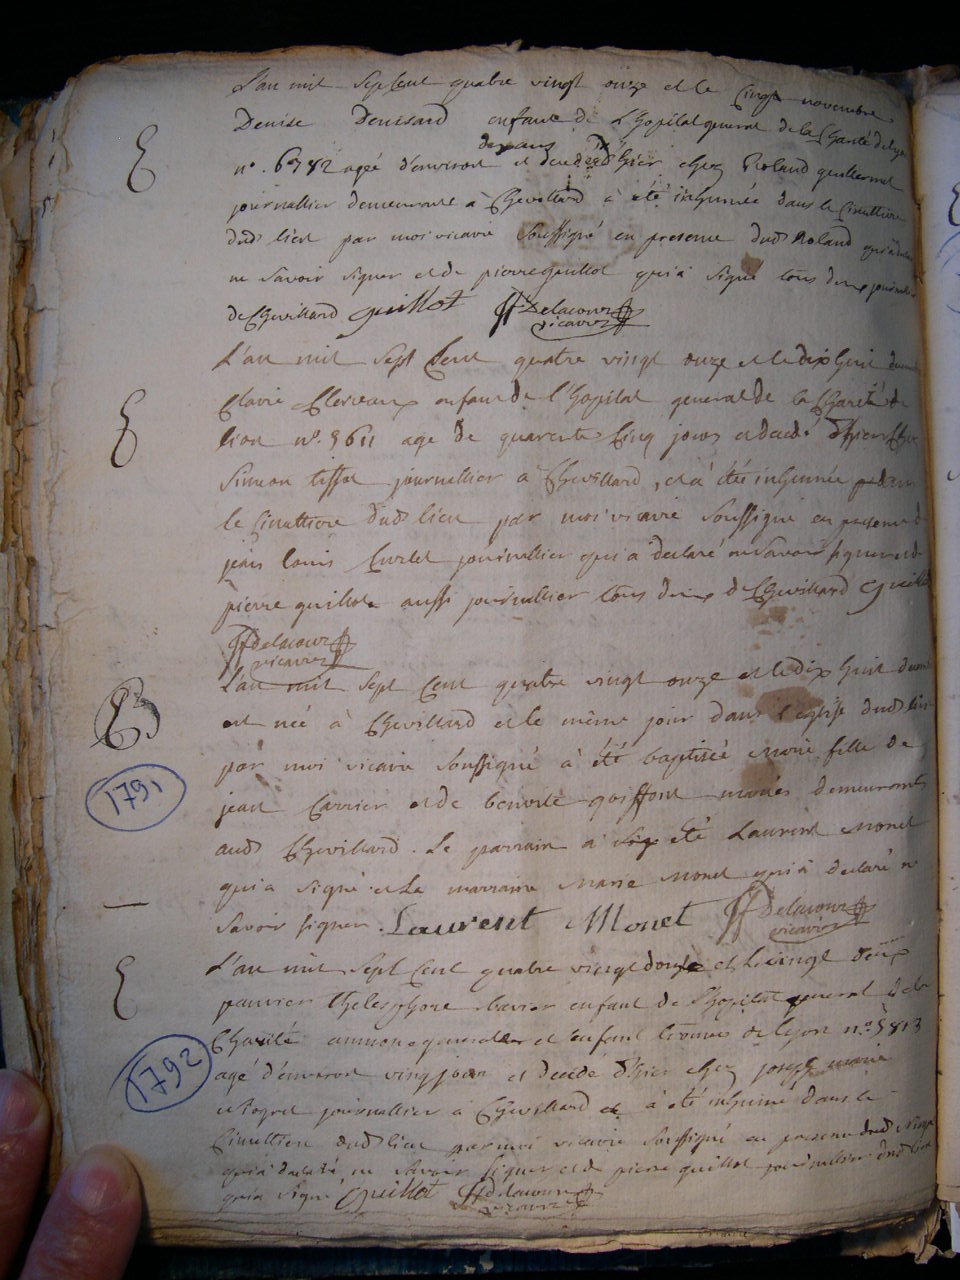 L'an mil sept Cent quatre vingt onze et le Cinq novembre
Denise enfant de L'hopital general de la Charité de Lyon
n°. 6782 agé d'environ et decedé d'hier chez Roland
journallier demeurant a Chevillard à été inhumée dans le Cimettiere
dud lieu par moi vicaire soussigné en presence dud Roland
ne savoir signer et de pierre guillot qui a signé tous deux
de Chevillard guillot Delacour
vicaire
L'an mil sept Cent quatre vingt onze et le dix huit
Claire enfant de l'hopital general de la Charité de
lion n°. 5611 age de quarente Cinq jours et decedé d'hier
Simeon tissot journallier a Chevillard, et a été inhumée
le Cimettiere dud lieu par moi vicaire soussigné en presence
jean louis journallier qui a declaré ne savoir signer
pierre guillot aussi journallier tous deux de Chevillard guillot
Delacour
vicaire
L'an mil sept Cent quatre vingt onze et le dix huit
est née à Chevillard et le même jour dans l'eglise dud lieu
1791
par moi vicaire soussigné à été baptisée marie fille de
jean Carrier et de benoite mariés demeurants
aud Chevillard. Le parrain a été Laurent Monet
qui a signé et La marraine Marie Monet qui a declaré ne
savoir signer. Laurent Monet Delacour
vicaire
L'an mil sept Cent quatre vingt douze et le vingt deux
janvier enfant de l'hopital general de la
Charité aumone generale et enfant de Lyon n°. 5813
1792
agé d'environ vingt jour et decedé d'hier chez joseph marie
journallier à Chevillard à été inhumé dans le
Cimettiere dud lieu par moi vicaire soussigné en presence dud
qui a declaré ne savoir signer et de pierre guillot journallier dud lieu
qui a signé guillot Delacour
vicaire